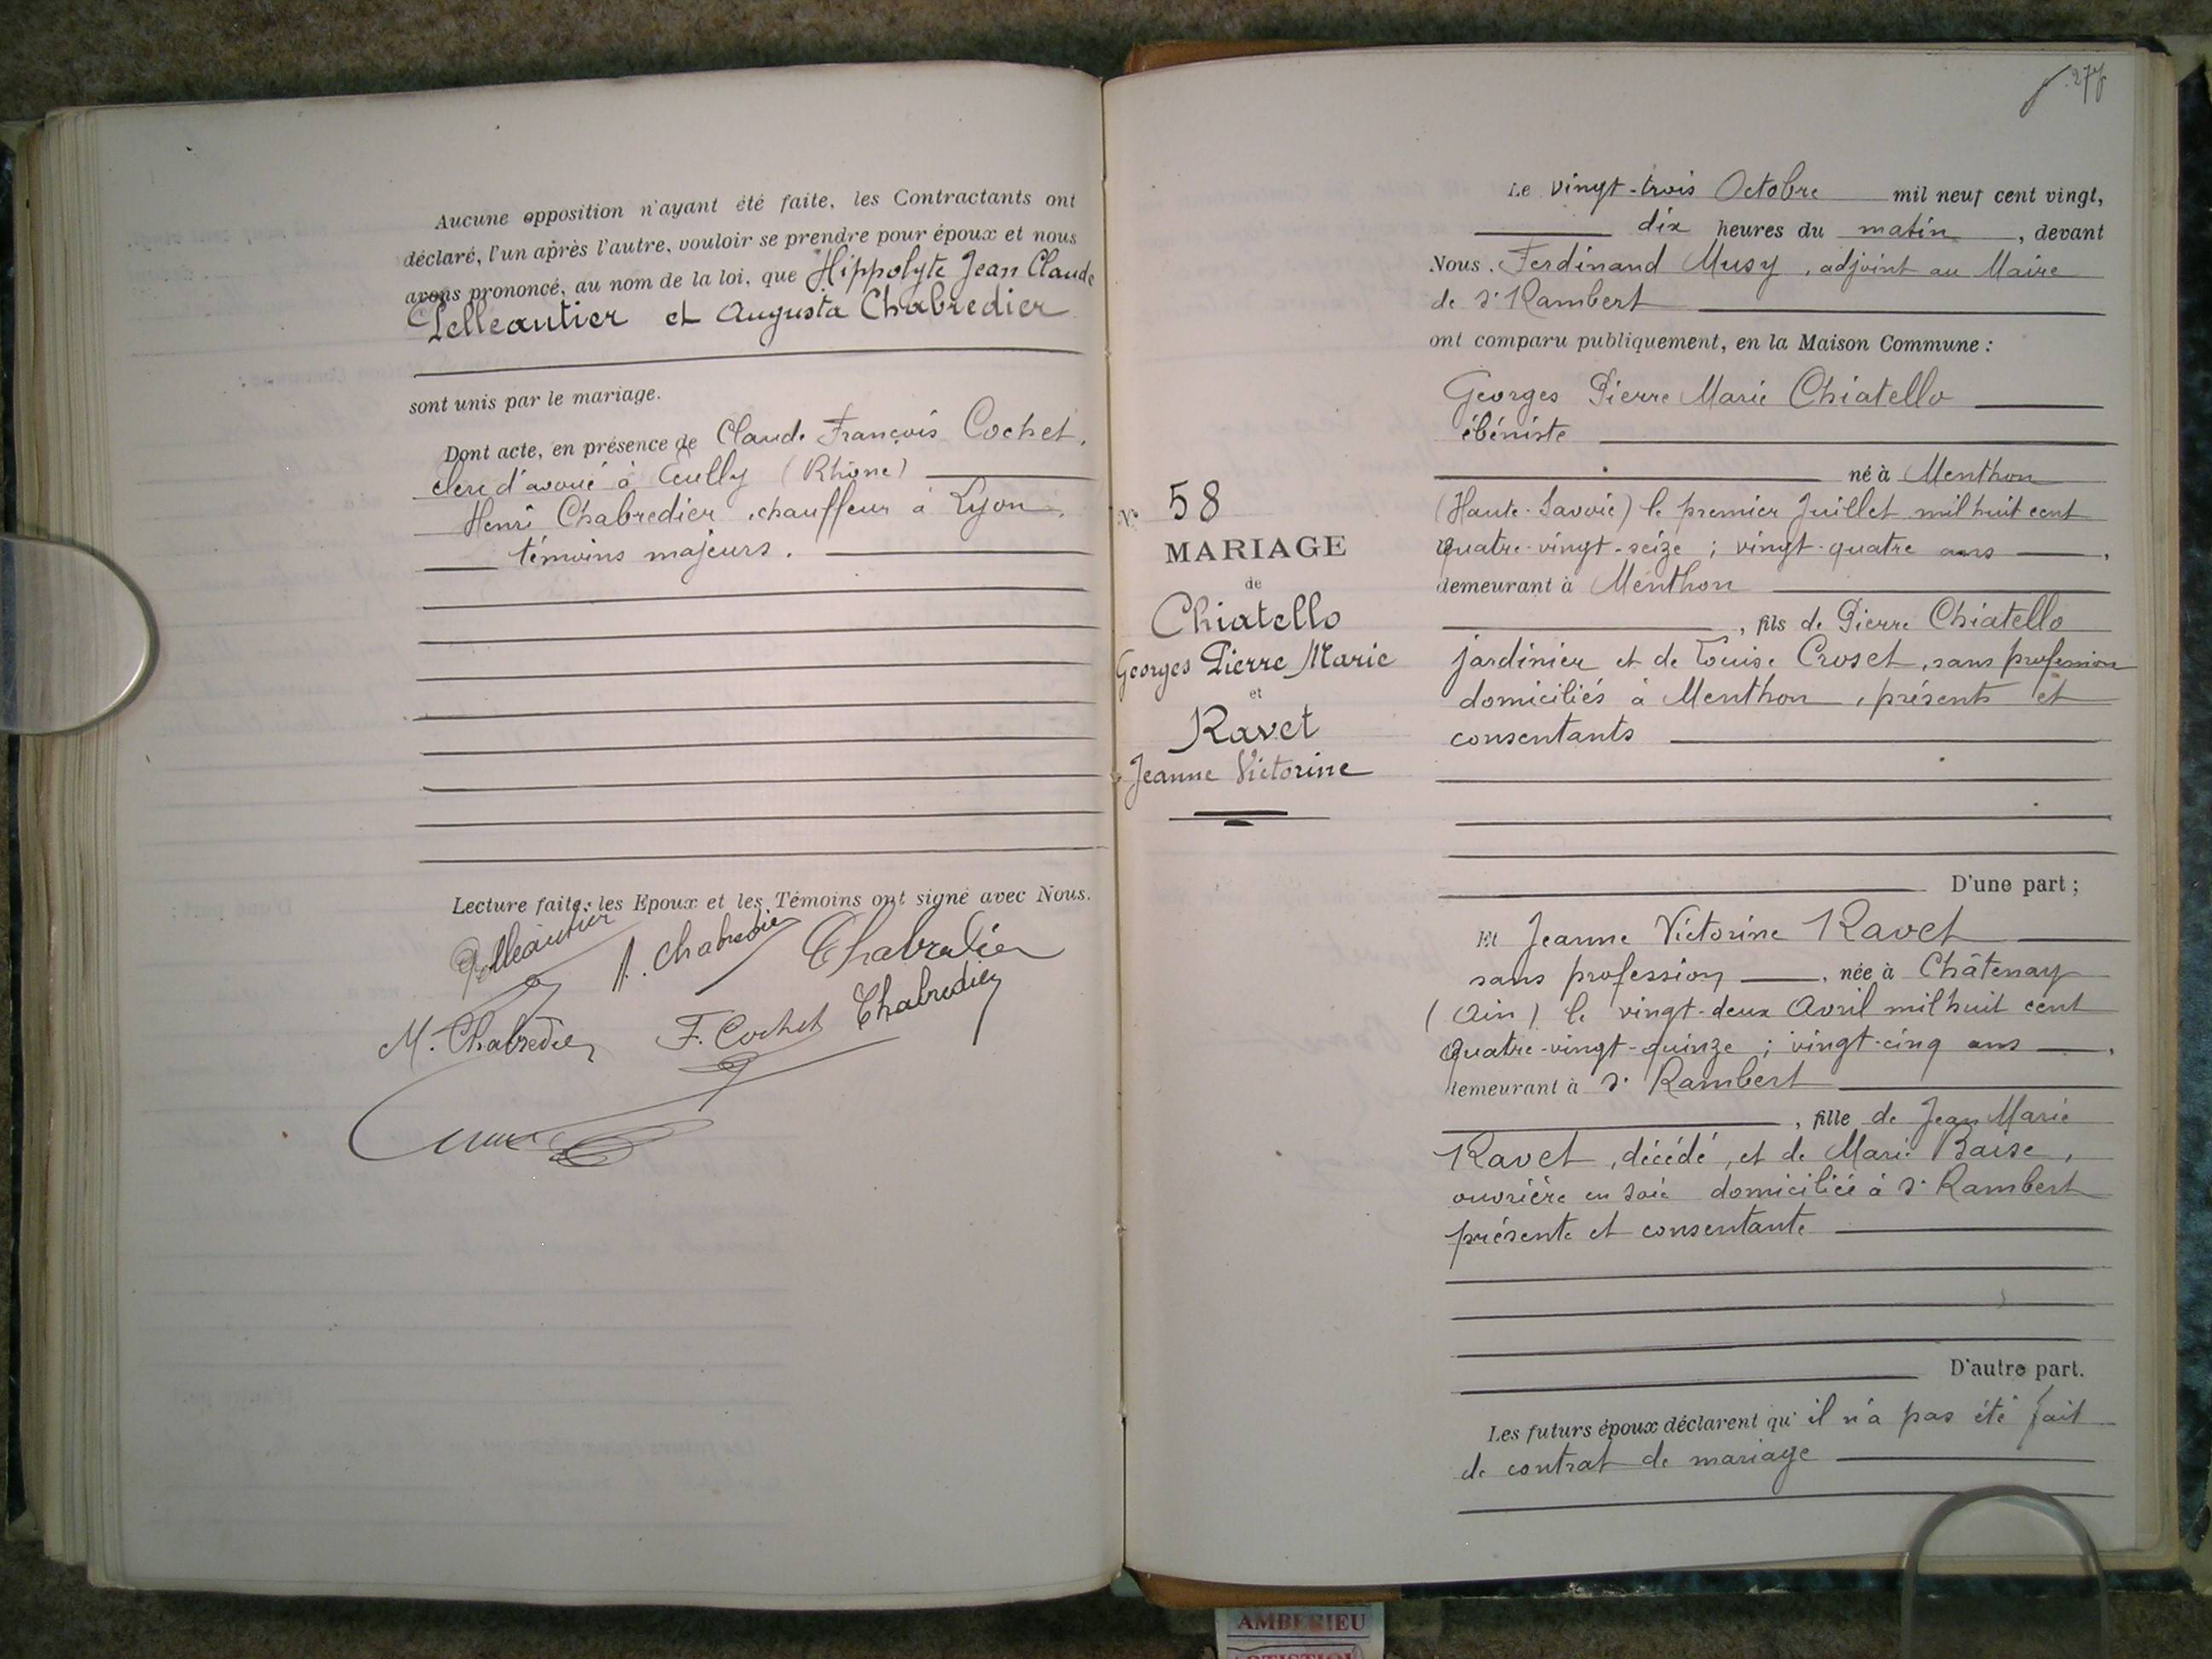 Aucune opposition n'ayant été faite, les Contractants ont
déclaré, l'un après l'autre, vouloir se prendre pour époux et nous
avons prononcé, au nom de la loi, que Hippolyte Jean Claude
Pelleautier et Augusta Chabredier
sont unis par le mariage.
Dont acte, en présence de Claude François Cochet,
clerc d'avoué à Ecully (Rhône)
Henri Chabredier, chauffeur à Lyon,
témoins majeurs.
Lecture faite, les Epoux et les Témoins ont signé avec Nous.
Pelleautier A. Chabredier Chabredier
M. Chabredier F. Cochet Chabredier
277
N° 58
MARIAGE
de
Chiatello
Georges Pierre Marie
et
Ravet
Jeanne Victorine
Le vingt-trois Octobre mil neuf cent vingt,
dix heures du matin, devant
Nous, Ferdinand Musy, adjoint au Maire
de St Rambert
ont comparu publiquement, en la Maison Commune :
Georges Pierre Marie Chiatello
ébéniste
né à Menthon
(Haute-Savoie) le premier Juillet mil huit cent
quatre-vingt-seize ; vingt-quatre ans,
demeurant à Menthon
, fils de Pierre Chiatello
jardinier et de Louise Croset, sans profession
domiciliés à Menthon, présents et
consentants
D'une part ;
Et Jeanne Victorine Ravet
sans profession, née à Châtenay
(Ain) le vingt-deux Avril mil huit cent
quatre-vingt-quinze ; vingt-cinq ans,
demeurant à St Rambert
, fille de Jean Marie
Ravet, décédé, et de Marie Baise,
ouvrière en soie domiciliée à St Rambert
présente et consentante
D'autre part.
Les futurs époux déclarent qu'il n'a pas été fait
de contrat de mariage
AMBERIEU